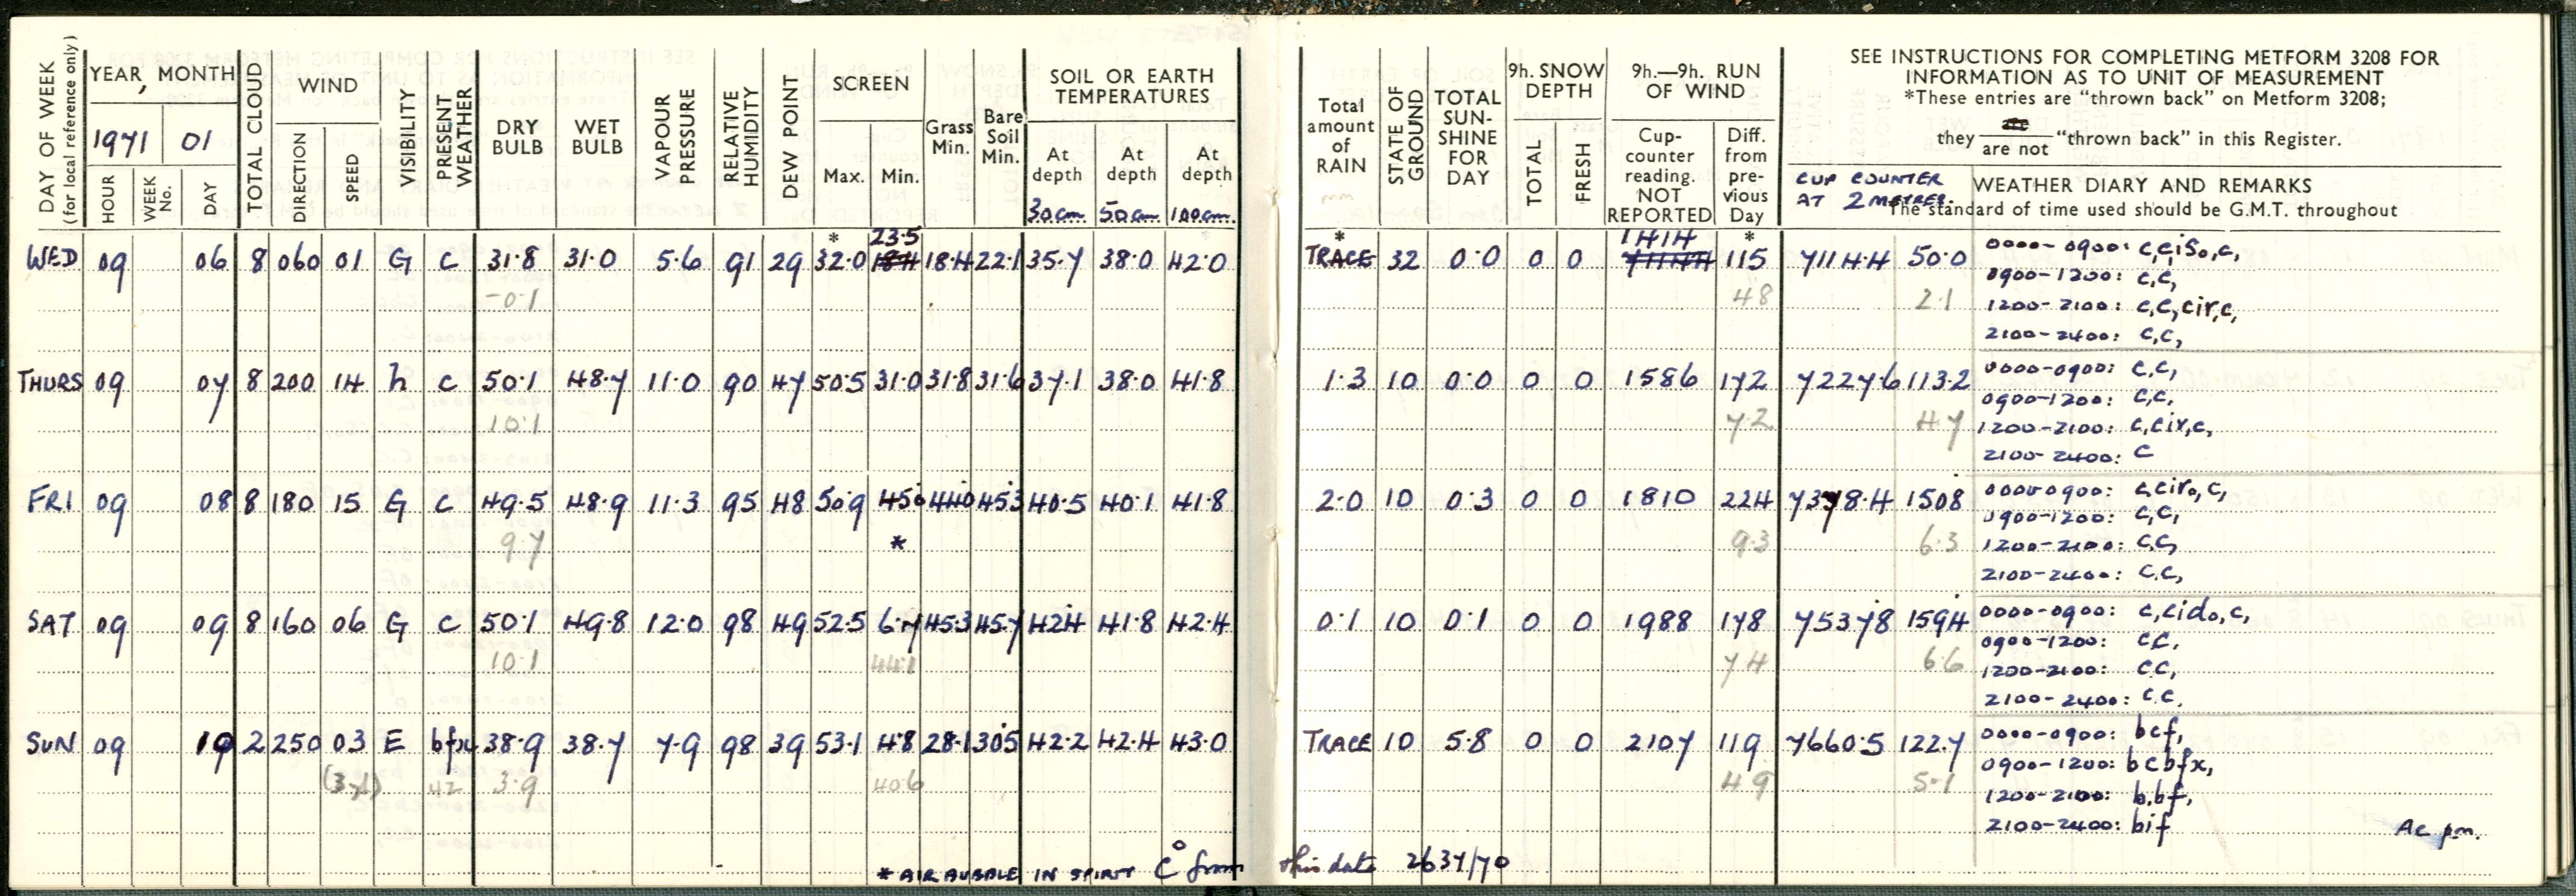 DAY OF WEEK
(for local reference only)
YEAR, MONTH
1971 01
HOUR
WEEK No.
DAY
TOTAL CLOUD
WIND
DIRECTION
SPEED
VISIBILITY
PRESENT WEATHER
DRY BULB
WET BULB
VAPOUR PRESSURE
RELATIVE HUMIDITY
DEW POINT
SCREEN
Max. Min.
Grass Min.
Bare Soil Min.
SOIL OR EARTH TEMPERATURES
At depth At depth At depth
30cm. 50cm. 100cm.
Total amount of RAIN
mm
STATE OF GROUND
TOTAL SUN-SHINE FOR DAY
9h. SNOW DEPTH
TOTAL
FRESH
9h.—9h. RUN OF WIND
Cup-counter reading. NOT REPORTED
Diff. from pre-vious Day
SEE INSTRUCTIONS FOR COMPLETING METFORM 3208 FOR
INFORMATION AS TO UNIT OF MEASUREMENT
*These entries are "thrown back" on Metform 3208;
they are / are not "thrown back" in this Register.
CUP COUNTER
AT 2 METRES.
WEATHER DIARY AND REMARKS
The standard of time used should be G.M.T. throughout
* 23.5 * 1414 *
WED 09 06 8 060 01 G C 31.8 31.0 5.6 91 29 32.0 18.4 18.4 22.1 35.7 38.0 42.0 TRACE 32 0.0 0 0 115 7114.4 50.0 0000-0900: c,ciso,c,
-0.1 48 2.1 0900-1200: c,c,
1200-2100: c,c,cir,c,
2100-2400: c,c,
THURS 09 07 8 200 14 h c 50.1 48.7 11.0 90 47 50.5 31.0 31.8 31.6 37.1 38.0 41.8 1.3 10 0.0 0 0 1586 172 7227.6 113.2 0000-0900: c,c,
10.1 7.2 4.7 0900-1200: c,c,
1200-2100: c,cir,c,
2100-2400: c
FRI 09 08 8 180 15 G C 49.5 48.9 11.3 95 48 50.9 45.0 44.0 45.3 40.5 40.1 41.8 2.0 10 0.3 0 0 1810 224 7378.4 150.8 0000-0900: c,ciro,c,
9.7 * 9.3 6.3 0900-1200: c,c,
1200-2100: c,c,
2100-2400: c,c,
SAT 09 09 8 160 06 G C 50.1 49.8 12.0 98 49 52.5 6.7 45.3 45.7 42.4 41.8 42.4 0.1 10 0.1 0 0 1988 178 7537.8 159.4 0000-0900: c,cido,c,
10.1 44.1 7.4 6.6 0900-1200: c.c.
1200-2100: c.c,
2100-2400: c.c.
SUN 09 10 2 250 03 E bfx 38.9 38.7 7.9 98 39 53.1 4.8 28.1 30.5 42.2 42.4 43.0 TRACE 10 5.8 0 0 2107 119 7660.5 122.7 0000-0900: bcf,
42 3.9 40.6 4.9 5.1 0900-1200: bcbfx,
1200-2100: b,bf,
2100-2400: bif Ac pm.
* AIR BUBBLE IN SPIRIT C° from this date 2637/70